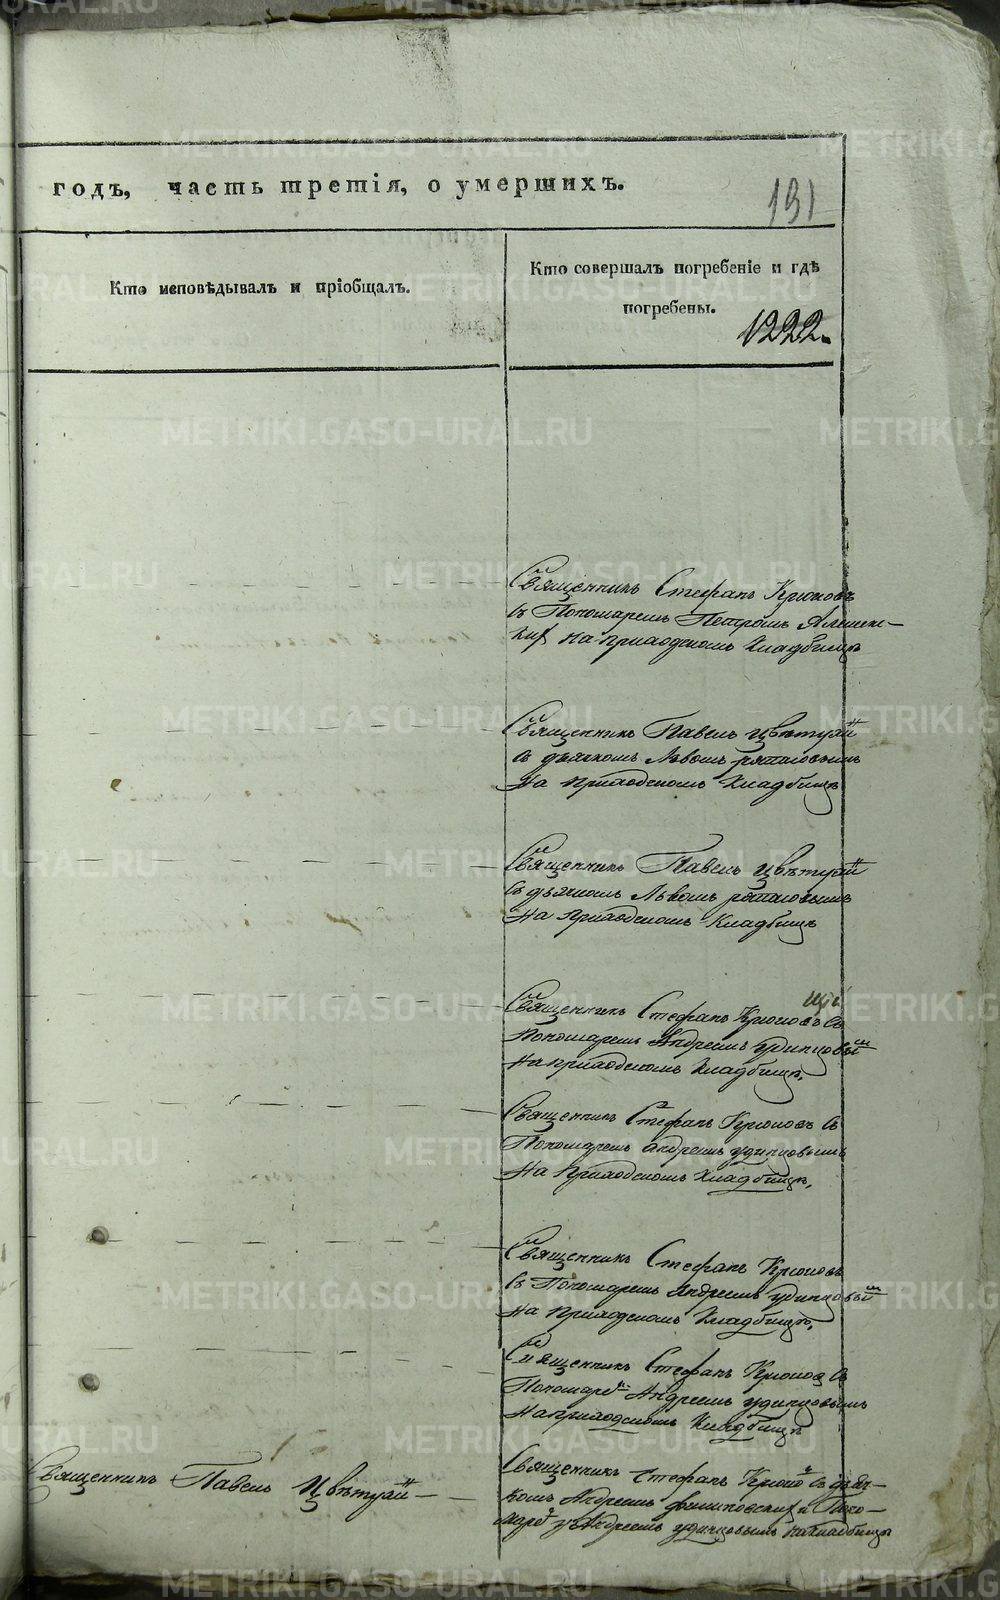 годъ, часть третія, о умершихъ.
191
Кто исповѣдывалъ и пріобщалъ.
Кто совершалъ погребеніе и гдѣ
погребены.
1222.
Священникъ Стефанъ Крюковъ
съ Пономаремъ Петромъ
на приходскомъ кладбищѣ
Священникъ Павелъ Цвѣтухи
съ дьячкомъ Львомъ
На приходскомъ кладбищѣ
Священникъ Павелъ Цвѣтухи
съ дьячкомъ Львомъ
На приходскомъ Кладбищѣ
Священникъ Стефанъ Крюковъ съ
Пономаремъ Андреемъ Удинцовым
На приходскомъ кладбищѣ,
Священникъ Стефанъ Крюковъ съ
Пономаремъ Андреемъ Удинцовымъ
На Приходскомъ кладбищѣ,
Священникъ Стефанъ Крюковъ
съ Пономаремъ Андреемъ Удинцовым
На приходскомъ Кладбищѣ,
Священникъ Стефанъ Крюков съ
Пономарем Андреемъ Удинцовымъ
На приходскомъ Кладбищѣ
Священникъ Павелъ Цвѣтухи
Священникъ Стефанъ Крюков съ дьяч-
комъ Андреемъ и Поно-
маремъ Андреемъ Удинцовымъ на кладбищѣ
METRIKI.GASO-URAL.RU